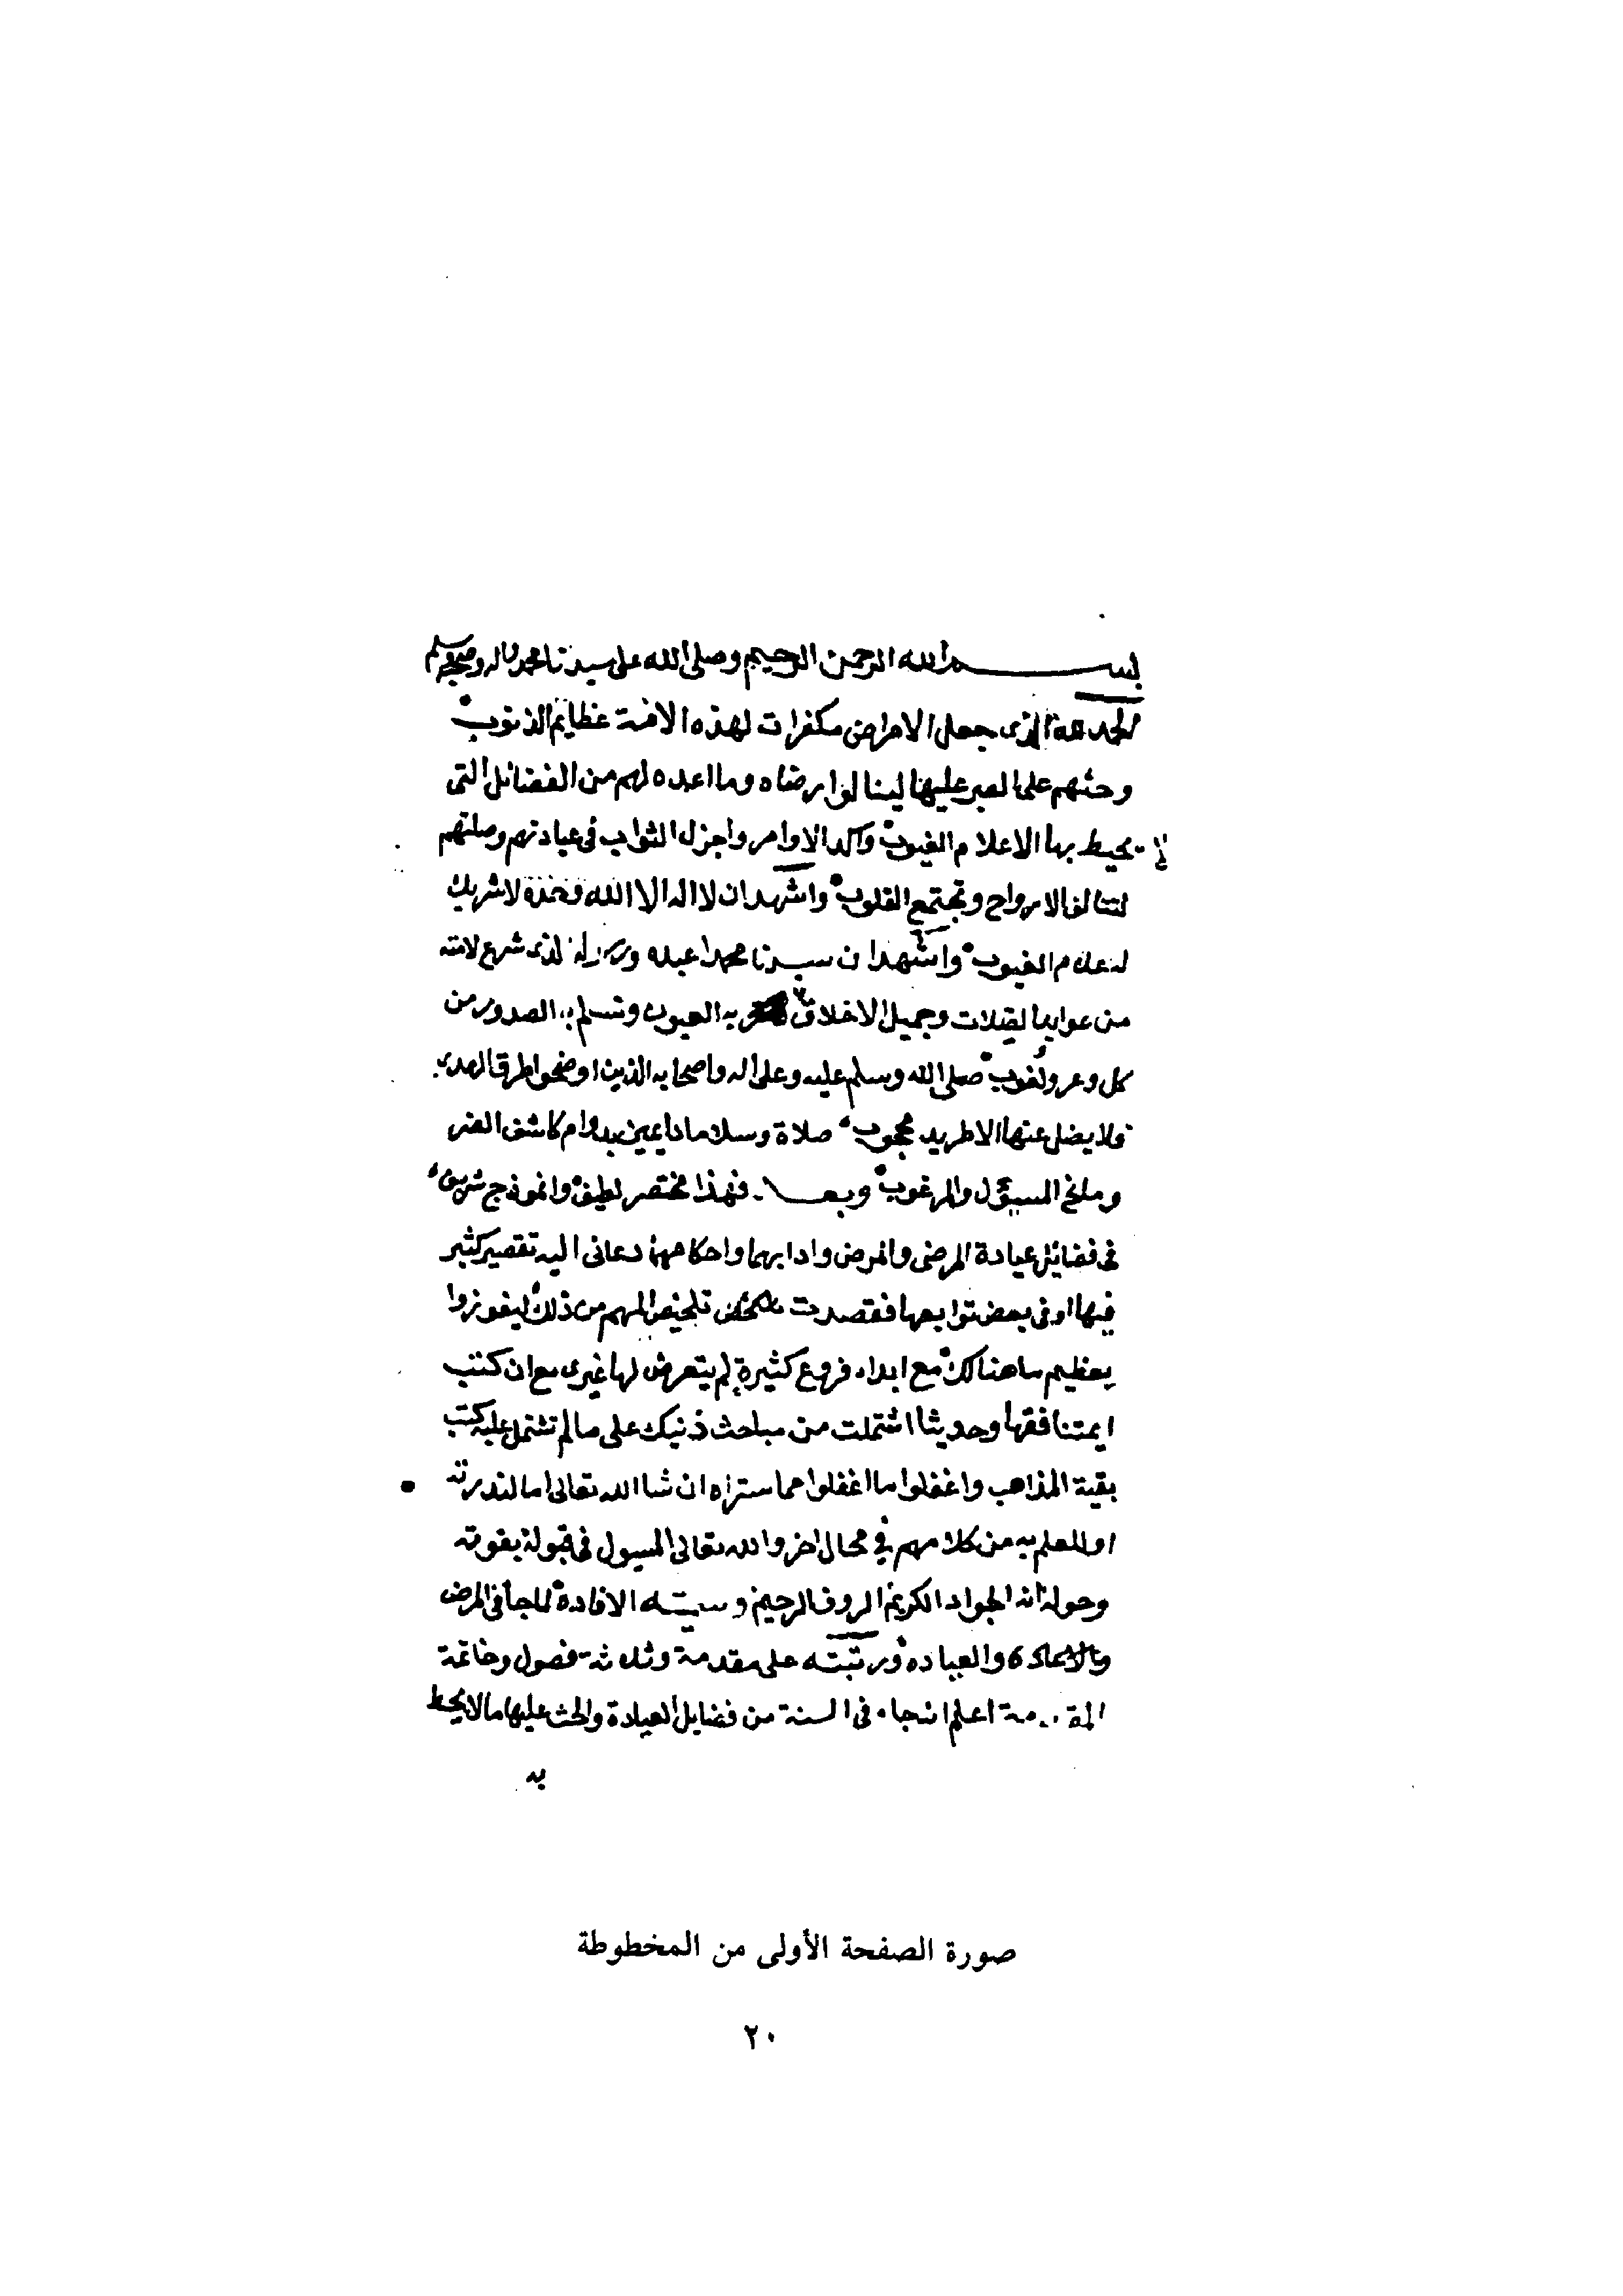 بسم الله الرحمن الرحيم وصلى الله على سيدنا محمد واله وصحبه وسلم
الحمد لله الذى جعل الامراض مكفرات لهذه الامة عظايم الذنوب
وحثهم على الصبر عليها لينالوا رضاه وما اعده لهم من الفضائل التى
لا يحيط بها الاعلام الغيوب واكد الاوامر واجزل الثواب فى عيادتهم وصلتهم
لتتالف الارواح وتجتمع القلوب واشهد ان لا اله الا الله وحده لا شريك
له علام الغيوب واشهد ان سيدنا محمدا عبده ورسوله الذى شرع لامته
من عوايد الصلات وجميل الاخلاق به العيون وتسلم به الصدور من
كل وعر ولغوب صلى الله وسلم عليه وعلى اله واصحابه الذين اوضحوا طرق الهدى
فلا يضل عنها الا طريد محجوب صلاة وسلاما دايمين بدوام كاشف الضر
ومانح المسؤل والمرغوب وبعد فهذا مختصر لطيف وانموذج شريف
فى فضائل عيادة المرضى والمرض وادابهما واحكامهما دعانى اليه تقصير كثير
فيها او فى بعض توابعها فقصدت تلخيص المهم من ذلك ليفوزوا
بعظيم ما هنالك مع ابداء فروع كثيرة لم يتعرض لها غيرى مع ان كتب
ايمتنا فقها وحديثا اشتملت من مباحث ذنيك على ما لم تشتمل عليه كتب
بقية المذاهب واغفلوا ما اغفلوا مما ستراه ان شا الله تعالى اما لندرته
او للعلم به من كلامهم فى محال اخر والله تعالى المسول فى قبوله بقوته
وحوله انه الجواد الكريم الروف الرحيم وسميته الافادة لما جا فى المرض
والعيادة ورتبته على مقدمة وثلاثة فصول وخاتمة
المقدمة اعلم انه جاء فى السنة من فضايل العيادة والحث عليها ما لا يحيط
به
صورة الصفحة الأولى من المخطوطة
٢٠